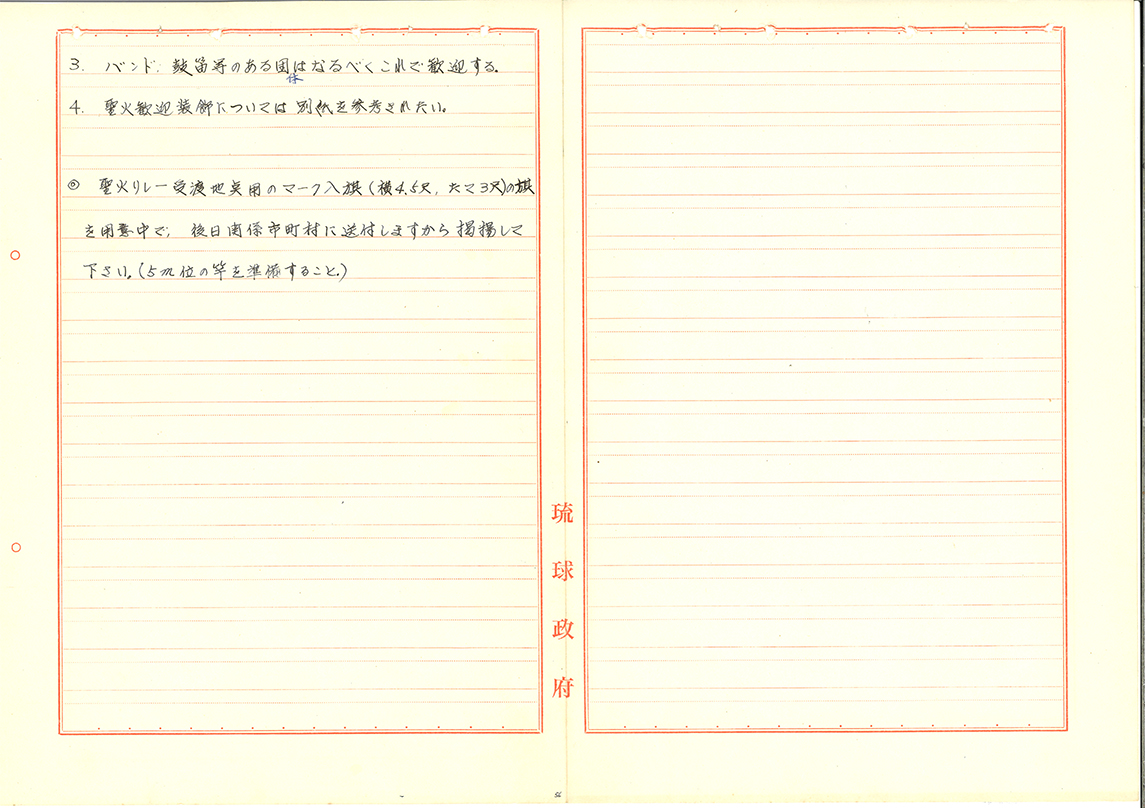 3. バンド、鼓笛等のある団体はなるべくこれで歓迎する。
4. 聖火歓迎装飾については別紙を参考されたい。
◎ 聖火リレー受渡地点用のマーク入旗(横4.5尺, たて3尺)の旗
を用意中で、後日関係市町村に送付しますから掲揚して
下さい。(5m位の竿を準備すること。)
琉球政府